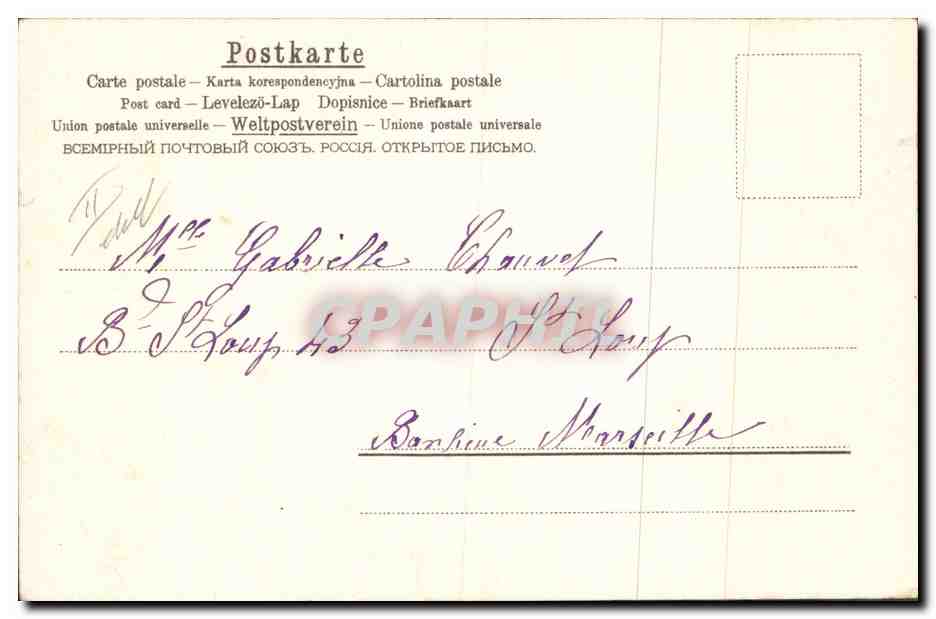 Postkarte
Carte postale – Karta korespondencyjna – Cartolina postale
Post card – Levelező-Lap Dopisnice – Briefkaart
Union postale universelle – Weltpostverein – Unione postale universale
ВСЕМІРНЫЙ ПОЧТОВЫЙ СОЮЗЪ. РОССІЯ. ОТКРЫТОЕ ПИСЬМО.
Mlle Gabrielle Chauvet
Bd St Loup 43 St Loup
Banlieue Marseille
CPAPHIL